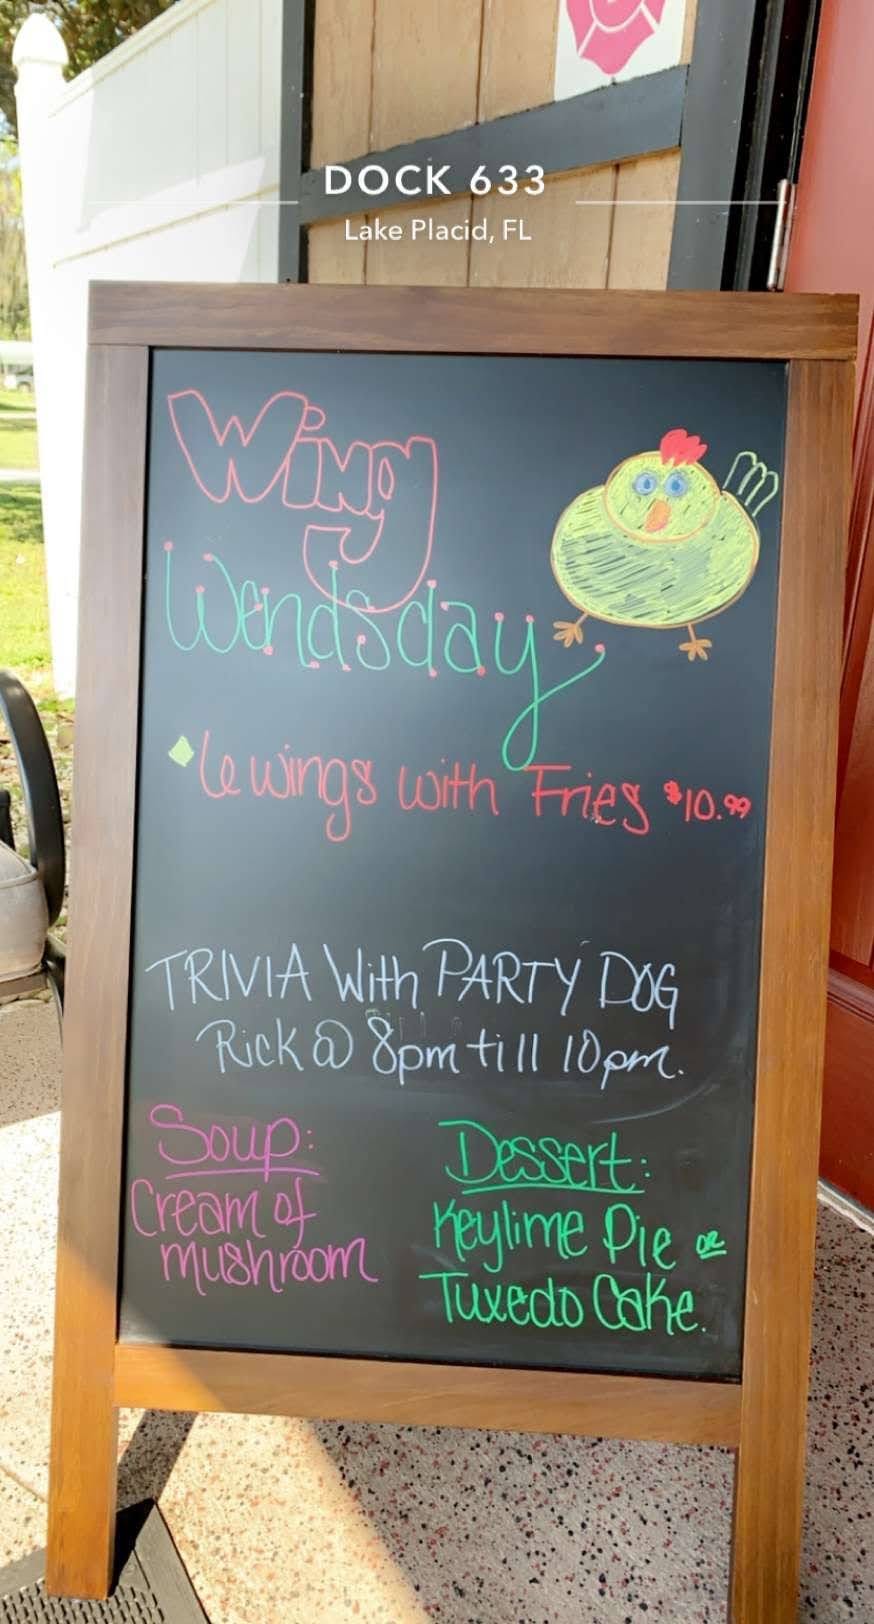 DOCK 633
Lake Placid, FL
Wing
Wendsday
6 wings with Fries $10.99
TRIVIA With PARTY DOG
Rick @ 8pm till 10pm.
Soup:
Cream of
mushroom
Dessert:
Keylime Pie or
Tuxedo Cake.